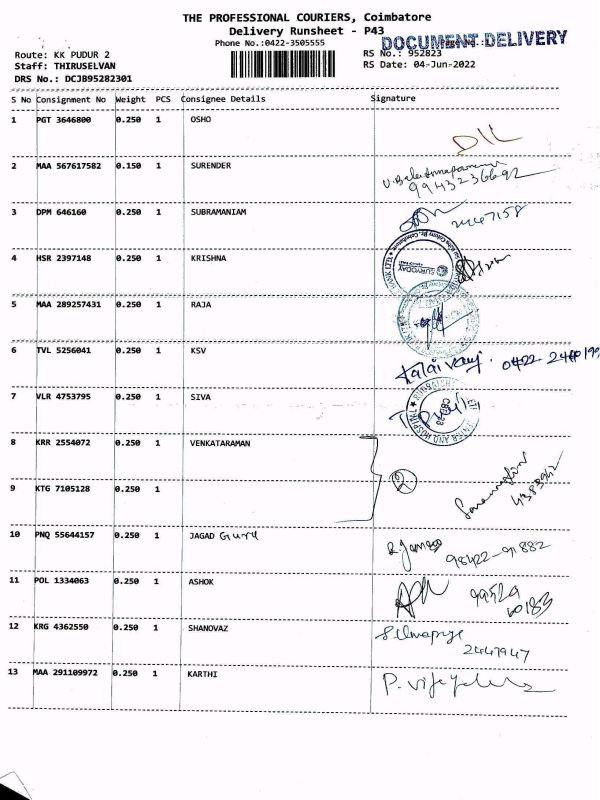 THE PROFESSIONAL COURIERS, Coimbatore
Delivery Runsheet - P43
Phone No.:0422-3505555
DOCUMENT DELIVERY
Route: KK PUDUR 2
RS No.: 952823
Staff: THIRUSELVAN
RS Date: 04-Jun-2022
DRS No.: DCJB95282301
S No Consignment No Weight PCS Consignee Details Signature
1 PGT 3646800 0.250 1 OSHO
DIL
2 MAA 567617582 0.150 1 SURENDER
9943236692
3 DPM 646160 0.250 1 SUBRAMANIAM
2447158
4 HSR 2397148 0.250 1 KRISHNA
SURYODAY
5 MAA 289257431 0.250 1 RAJA
6 TVL 5256041 0.250 1 KSV
Kalaivani. 0422
7 VLR 4753795 0.250 1 SIVA
8 KRR 2554072 0.250 1 VENKATARAMAN
9 KTG 7105128 0.250 1
10 PNQ 55644157 0.250 1 JAGAD Guru
98422-91882
11 POL 1334063 0.250 1 ASHOK
99529
60183
12 KRG 4362550 0.250 1 SHANOVAZ
2447947
13 MAA 291109972 0.250 1 KARTHI